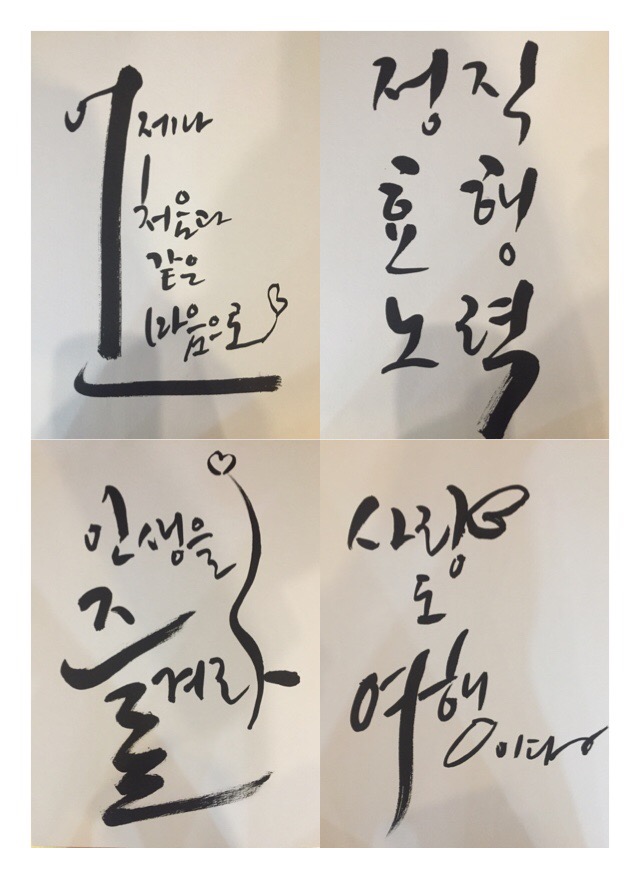 언제나
처음과
같은
마음으로
정직
효행
노력
인생을
즐겨라
사랑
도
여행이다